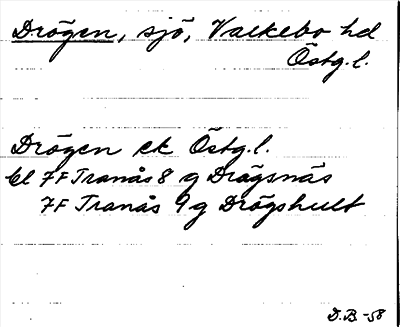 Drögen, sjö, Valkebo hd
Östg.l.
Drögen ek Östg.l.
bl 7F Tranås 8 g Drögsnäs
7F Tranås 9 g Drögshult
D.B. -58